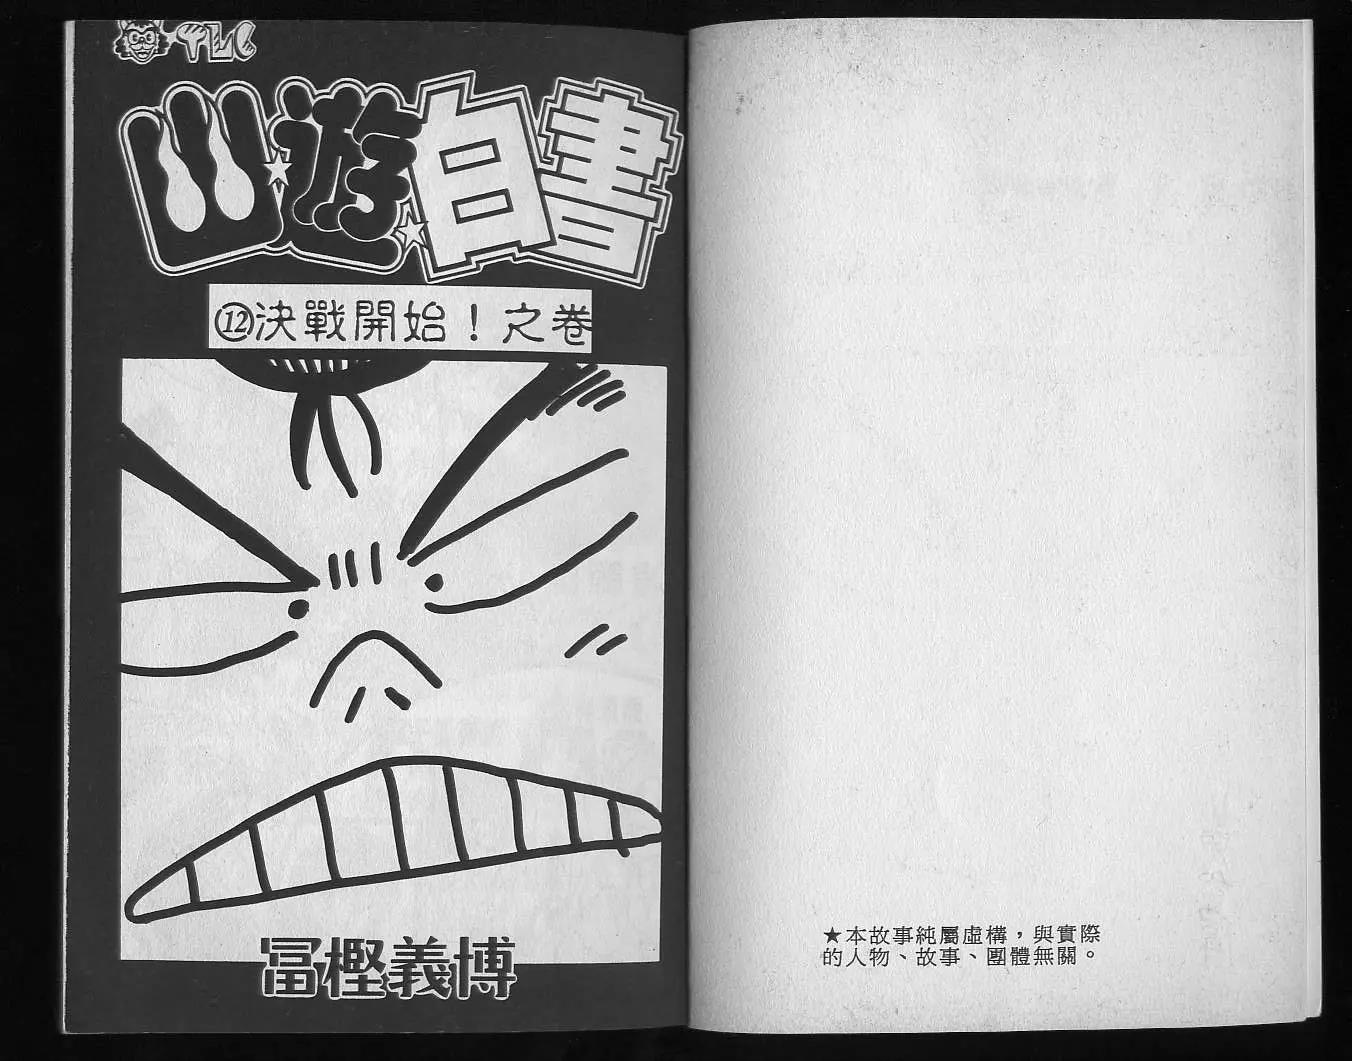 TLC
幽遊白書
⑫決戰開始！之卷
冨樫義博
★本故事純屬虛構，與實際
的人物、故事、團體無關。